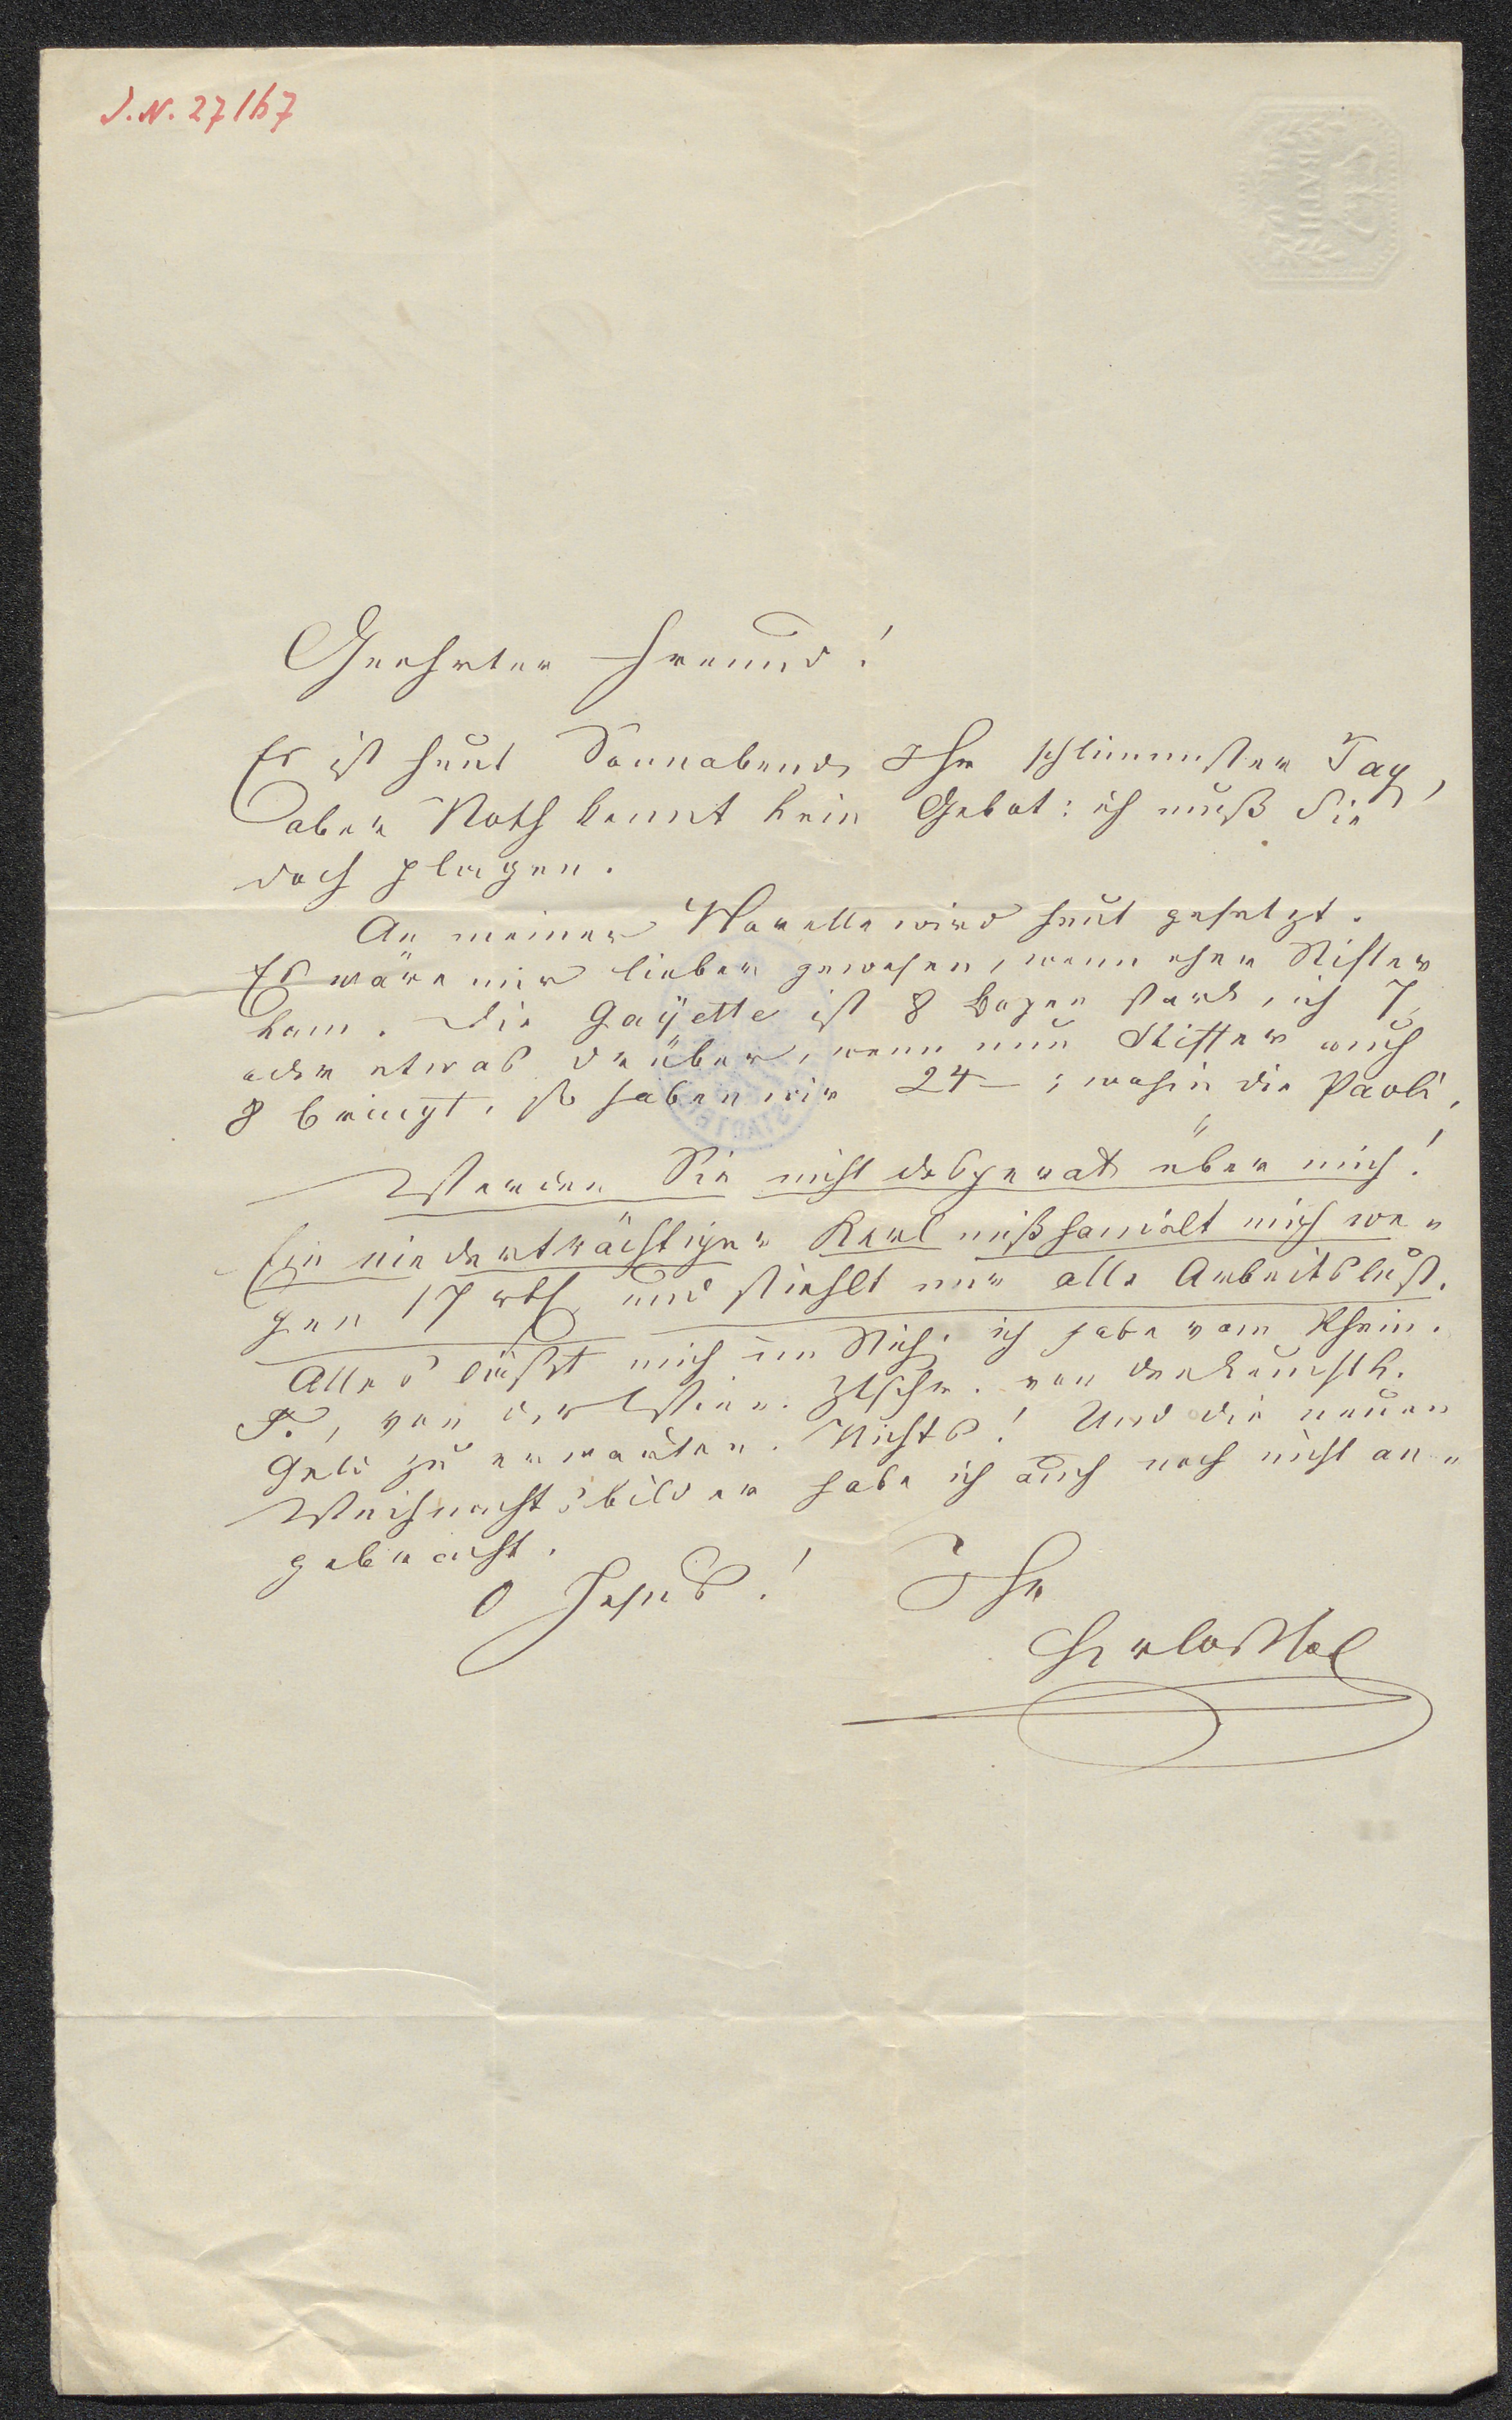 J.N. 27167
BATH
Geehrter Freund!
Es ist heut Sonnabend, Ihr schlimmster Tag,
aber Noth kennt kein Gebot: ich muß Sie
doch plagen.
An meiner Novelle wird heut gesetzt.
Es wäre mir lieber gewesen, wenn eher Stifter
kam. Die Gayette ist 8 Bogen stark, ich 7,
oder etwas drüber, wenn nun Stifter auch
8 bringt, so haben wir 24 – ; wohin die Paoli,
Werden Sie nicht desperat über mich!
Ein niederträchtiger Kerl mißhandelt mich we-
gen 17 rth und stiehlt mir alle Arbeitslust.
Alles läßt mich im Stich; ich habe vom Rhein.
T., von der Wien. Ztschr. von der
Geld zu erwarten. Nichts! Und die neuen
Weihnachtsbilder habe ich auch noch nicht an-
gebracht.
O Jesus! Ihr
Herloßsohn